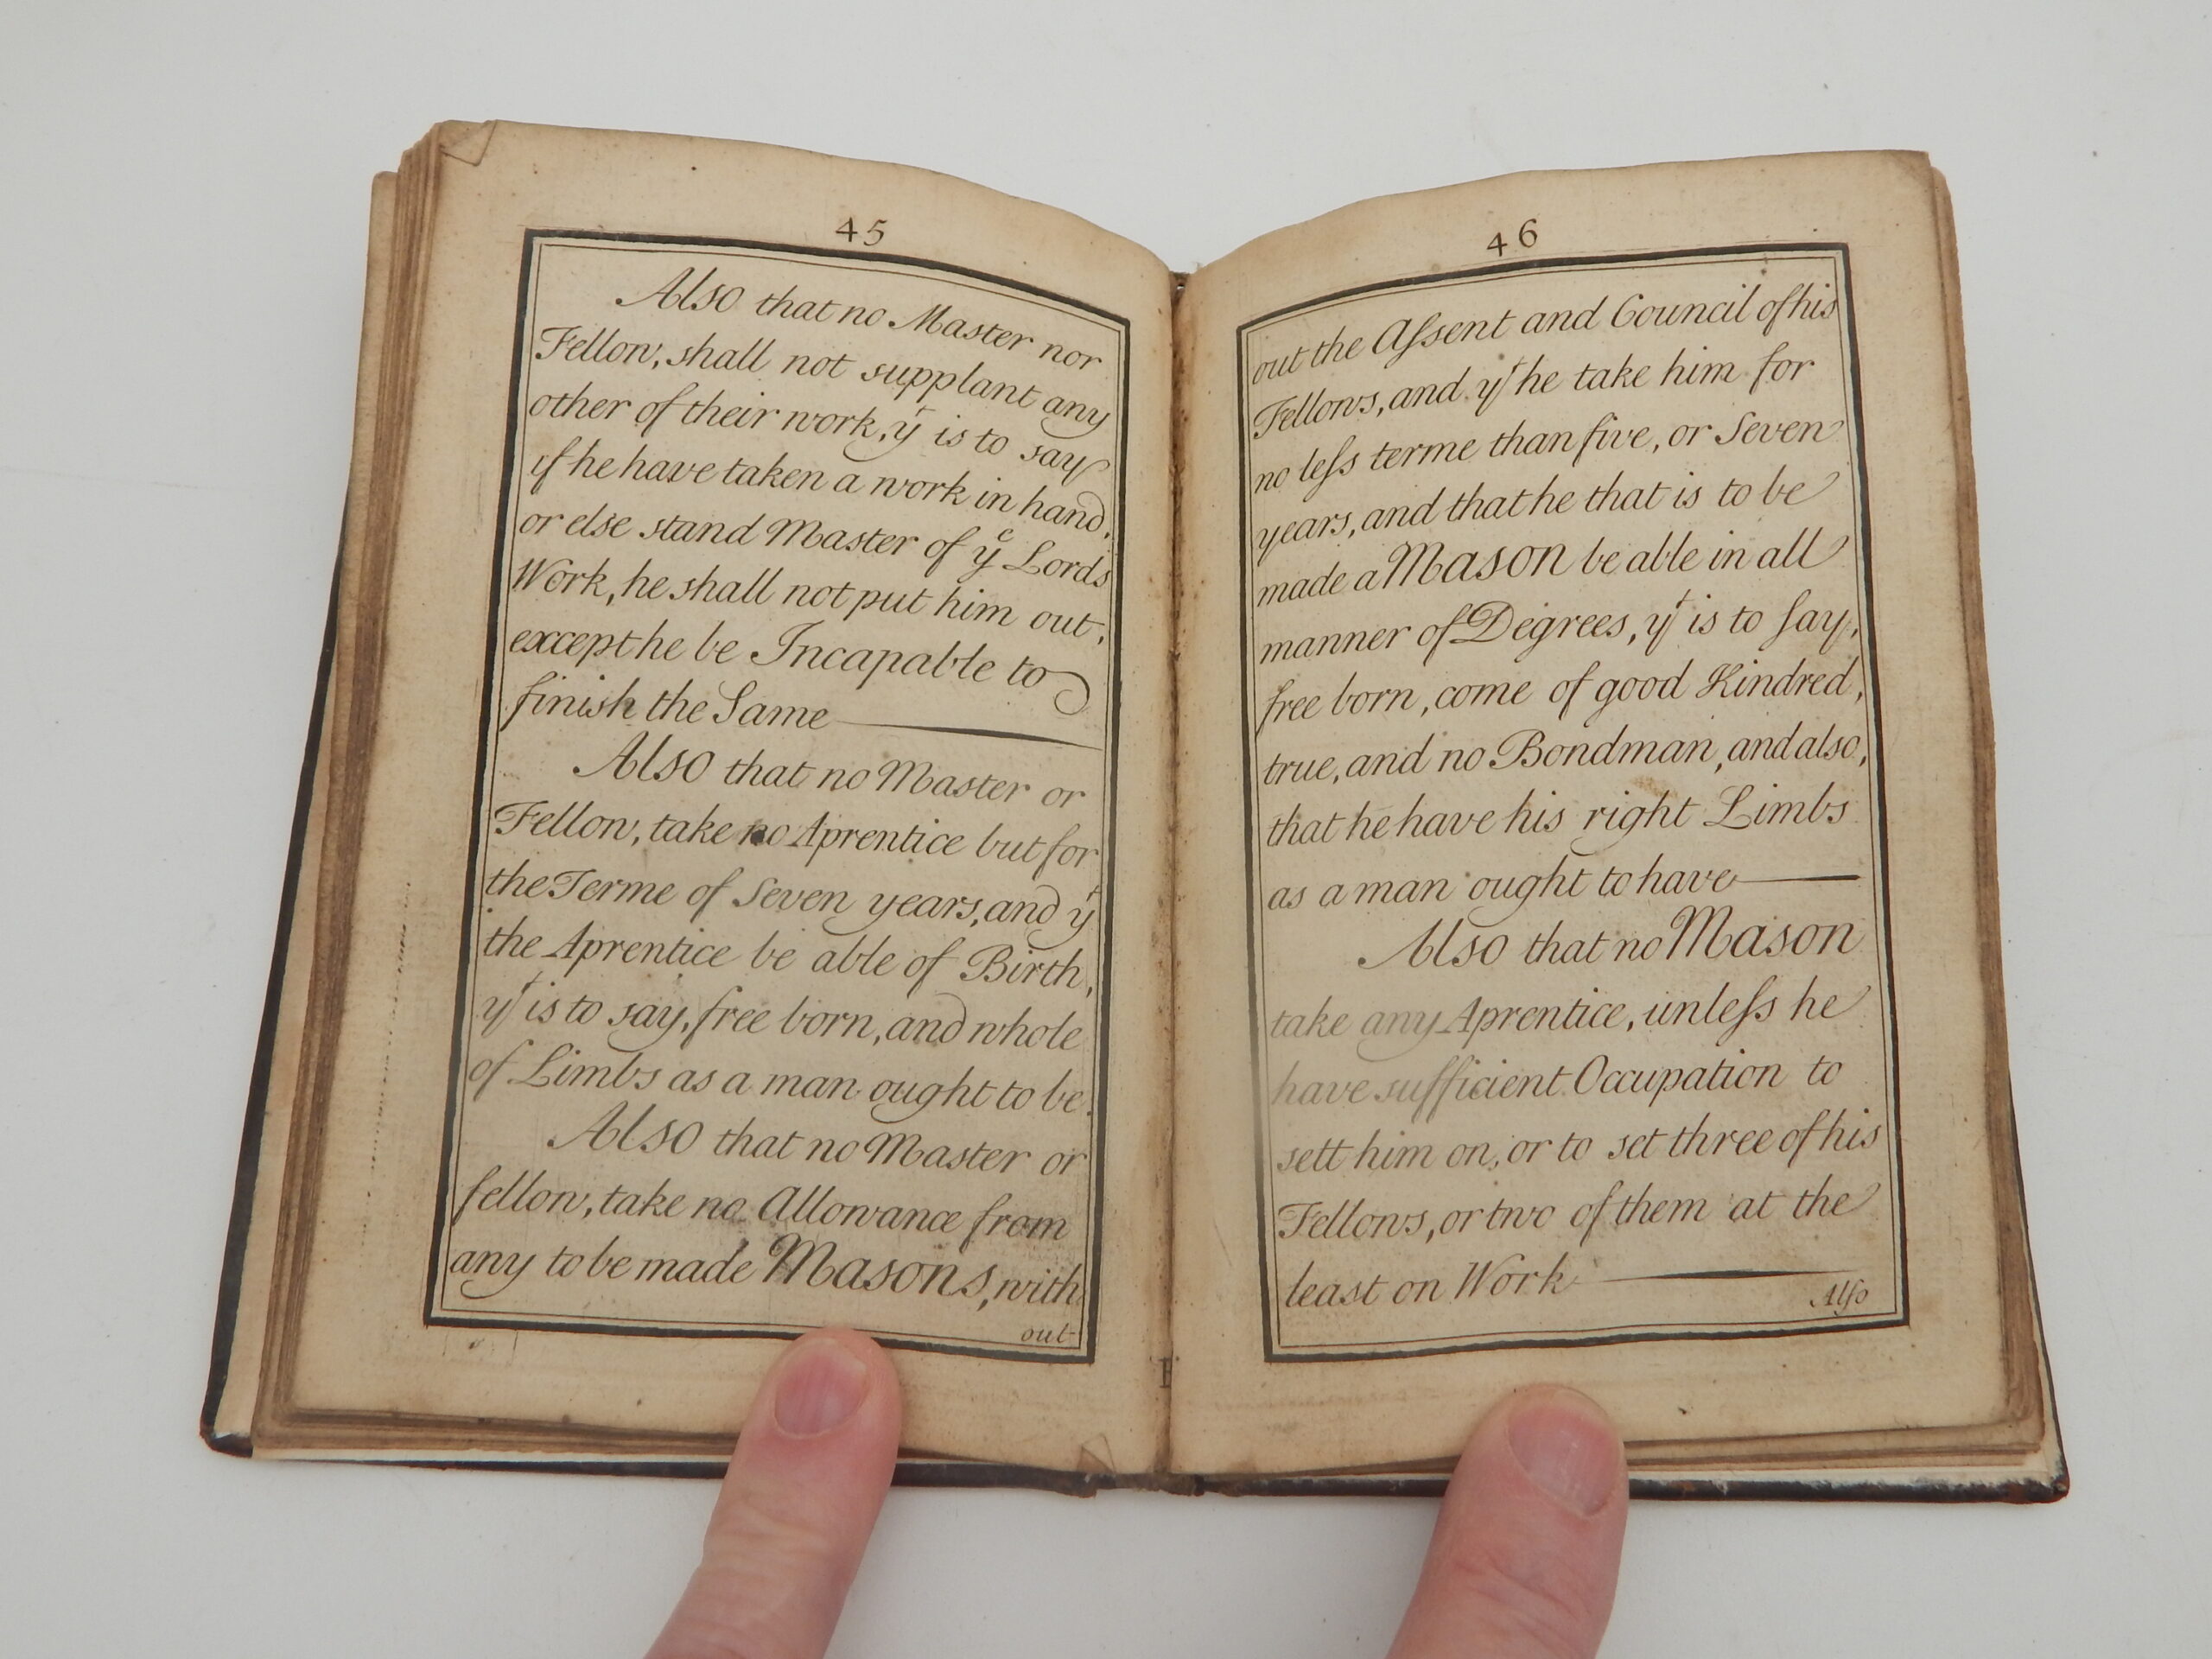 45
Also that no Master nor
Fellow, shall not supplant any
other of their work, yͭ is to say
if he have taken a work in hand,
or else stand Master of yͤ Lords
Work, he shall not put him out,
except he be Incapable to
finish the Same
Also that no Master or
Fellow, take no Aprentice but for
the Terme of Seven years, and yͭ
the Aprentice be able of Birth,
yͭ is to say, free born, and whole
of Limbs as a man ought to be.
Also that no Master or
fellow, take no Allowance from
any to be made Masons, with
out
46
out the Aſsent and Council of his
Fellows, and yͭ he take him for
no leſs terme than five, or Seven
years, and that he that is to be
made a Mason be able in all
manner of Degrees, yͭ is to say,
free born, come of good Kindred,
true, and no Bondman, and also,
that he have his right Limbs
as a man ought to have
Also that no Mason
take any Aprentice, unleſs he
have sufficient Occupation to
sett him on, or to set three of his
Fellows, or two of them at the
least on Work
Alſo